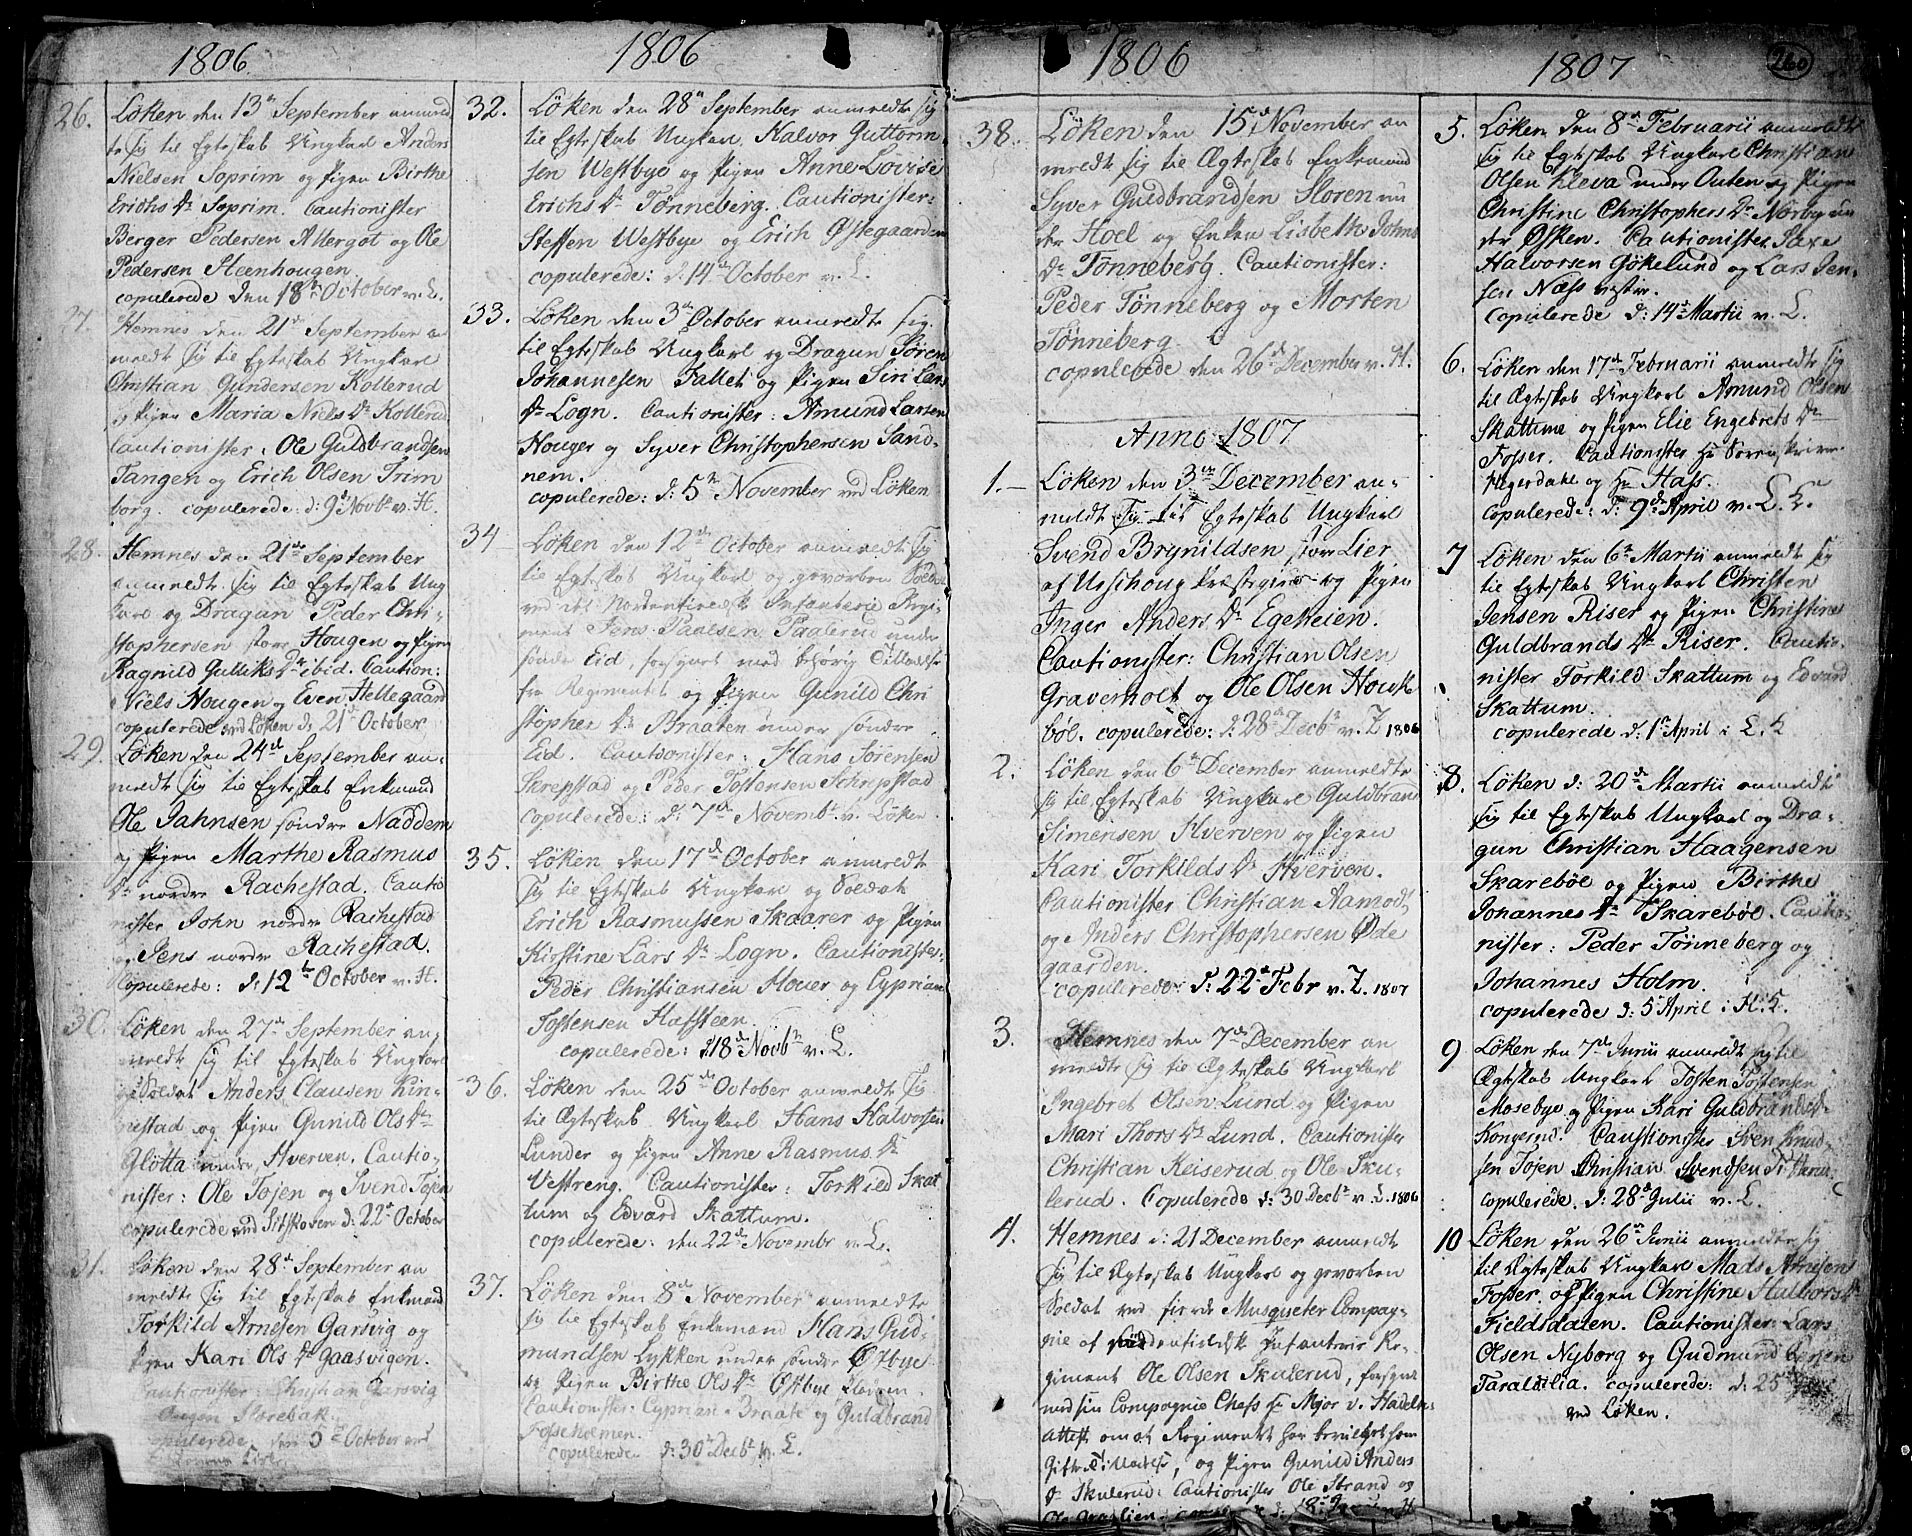 1806
26. Løken den 13de September anmeld
te sig til Egteskab Ungkarl Anders
Nielsen Soprim og Pigen Birthe
Erichs Dr Soprim. Cautionister
Berger Pedersen Altergot og Ole
Pedersen Steenhougen
copulerede den 18de October v. L.
27. Hemnes den 21de September an
meldt sig til Egteskab Ungkarl
Christian Gundersen Kollerud
og Pigen Maria Niels Dr Kollerud
Cautionister: Ole Guldbrandsen
Tangen og Erich Olsen Trim
borg. copulerede: d: 9de Novbr v. H.
28. Hemnes den 21de September
anmeldt sig til Egteskab Ung
karl og Dragun Peder Chri-
stophersen store Hougen og Pigen
Ragnild Gulliks Dr ibid. Caution:
Niels Hougen og Even Hellegaard
copulerede ved Løken d: 21de October
29. Løken den 24de September an-
meldt sig til Egteskab Enkemand
Ole Jahnsen søndre Naddem
og Pigen Marthe Rasmus
Dr nordre Rachestad. Cautio
nister John nordre Rachestad
og Jens nordre Rachestad.
Copulerede: d: 12te October v. H.
30. Løken den 27de September an-
meldt sig til Egteskab Ungkarl
og Soldat Anders Clausen Kin-
nestad og Pigen Gunild Ols Dr
Gløtta under Hverven. Cautio-
nister: Ole Tojen og Svend Tojen
copulerede ved Sitskoven d: 22de October
31. Løken den 28de September an
meldte sig til Egteskab Enkemand
Torkild Arnesen Garsvig og
Pigen Kari Ols Dr Gaasvigen.
Cautionister: Christian Garsvig
Storebak
copulerede den 5te October ved
1806
32. Løken den 28de September anmeldte sig
til Egteskab Ungkarl Halvor Guttorm
sen Westbye og Pigen Anne Lovise
Erichs Dr Tønneberg. Cautionister:
Steffen Westbye og Erich Østegaarden
copulerede: d: 14de October v. L.
33. Løken den 3de October anmeldte sig
til Egteskab Ungkarl og Dragun Søren
Johannesen Fallet og Pigen Siri Lars
Dr Logn. Cautionister: Amund Larsen
Houger og Syver Christophersen Sand-
nem.
copulerede: d: 5te November ved Løken
34 Løken den 12te October anmeldte sig
til Egteskab Ungkarl og gevorben Soldat
ved det Nordenfieldsk Infanterie Regi-
ment Jens Paalsen Paalerud under
søndre Eid, forsynet med behørig Tilladelse
fra Regimentet og Pigen Gunild Chri
stopher Dr Braaten under søndre
Eid. Cautionister: Hans Sørensen
Skrepstad og Peder Tostensen Schrepstad
copulerede: d: 7de Novembr v. Løken
35. Løken den 17de October anmeldt
sig til Egteskab Ungkarl og Soldat
Erich Rasmussen Skaarer og Pigen
Kirstine Lars Dr Logn. Cautionister:
Peder Christiansen Houer og Cyprian
Tostensen Hafsteen.
copulerede: d 18de Novbr v. L.
36. Løken den 25de October anmeldte sig
til Ægteskab Ungkarl Hans Halvorsen
Lunder og Pigen Anne Rasmus Dr
Vestreng. Cautionister: Torkild Skat
tum og Edvard Skattum.
copulerede: den 22de Novembr v. L.
37. Løken den 8de November anmeldte
sig til Egteskab Enkemand Hans Gud-
mundsen Lykken under søndre Østbye
og Pigen Birthe Ols Dr Østbye
Cautionister: Cyprian Braate og Guldbrand
Fosseholmen.
copulerede d: 30te Decbr v. L.
1806
38. Løken den 15de November an
meldt sig til Ægteskab Enkemand
Syver Guldbrandsen Sloren un
der Hoel og Enken Lisbeth Johns
Dr Tønneberg. Cautionister:
Peder Tønneberg og Morten
Tønneberg.
copulerede den 26de December v. H.
Anno 1807
1. Løken den 3die December an-
meldt sig til Egteskab Ungkarl
Svend Brynildsen, store Lier
af Urschoug Præstegield og Pigen
Inger Anders Dr Egekeien.
Cautionister: Christian Olsen
Graverholt og Ole Olsen Houk
bøl. copulerede: d: 28de Decbr v. Z 1806
2. Løken den 6te December anmeldte
sig til Egteskab Ungkarl Guldbrand
Simensen Hverven og Pigen
Kari Torkilds Dr Hverven.
Cautionister Christian Aamodt
og Anders Christophersen Øde
gaarden.
copulerede: d: 22de Febr v. Z. 1807
3. Hemnes den 7de December an
meldte sig til Ægteskab Ungkarl
Ingebret Olsen Lund og Pigen
Mari Thors Dr Lund. Cautionister
Christian Keiserud og Ole Sku-
lerud. Copulerede d: 30 Decbr v. L. 1806
4. Hemnes d: 21 December anmeldt
sig til Ægteskab Ungkarl og gevorben
Soldat ved fierde Musqueter Compag-
nie af Nordenfieldsk Infanterie Re-
giment Ole Olsen Skulerud, forsynet
med sin Compagnie Chefs Hr Major v.
Attest om at Regimentet har bevilget ham
Gifte Tilladelse, og Pigen Gunild Anders
Dr Skulerud: Cautionister Ole Strand og
1807
260
5. Løken den 8de Februarii anmeldte
sig til Egteskab Ungkarl Christian
Olsen Kleva under Outen og Pigen
Christine Christophers Dr Norby un
der Øsken. Cautionister Saxe
Halvorsen Gökelund og Lars Jen-
sen Næss vestre.
copulerede d: 14de Martii v. L.
6. Løken den 17de Februarii anmeldte sig
til Egteskab Ungkarl Amund Olsen
Skattum og Pigen Elie Engebrets Dr
Fosser. Cautionister Hr Sorenskriver
Agerdahl og Hr Hass.
copulerede: d: 9de April v. L. K.
7 Løken den 6te Martii anmeldte sig
til Egteskab Ungkarl Christen
Jensen Riser og Pigen Christine
Guldbrands Dr Riser. Cautio-
nister Torkild Skattum og Edvard
Skattum.
copulerede d: 1te April i L. K
8. Løken d: 20de Martii anmeldt
sig til Egteskab Ungkarl og Dra-
gun Christian Haagensen
Skarebøe og Pigen Birthe
Johannes Dr Skarebøl. Cautio-
nister: Peder Tønneberg og
Johannes Holm.
copulerede d: 5te April i H. K.
9 Løken den 7de Junii anmeldt sig til
Ægteskab Ungkarl Tosten Tostensen
Mosebye og Pigen Kari Guldbrands Dr
Kongerud. Cautionister Sven Knud-
sen Tojen Christian Svendsen
copulerede. d: 28de Julii v. L.
10 Løken den 26de Junii anmeldte sig
til Ægteskab Ungkarl Mads Arnesen
Fosser, og Pigen Christine Halvors Dr
Fieldsdalen. Cautionister: Lars
Olsen Nyborg og Gudmund
Taraldlia. copulerede: d: 25de
ved Løken.